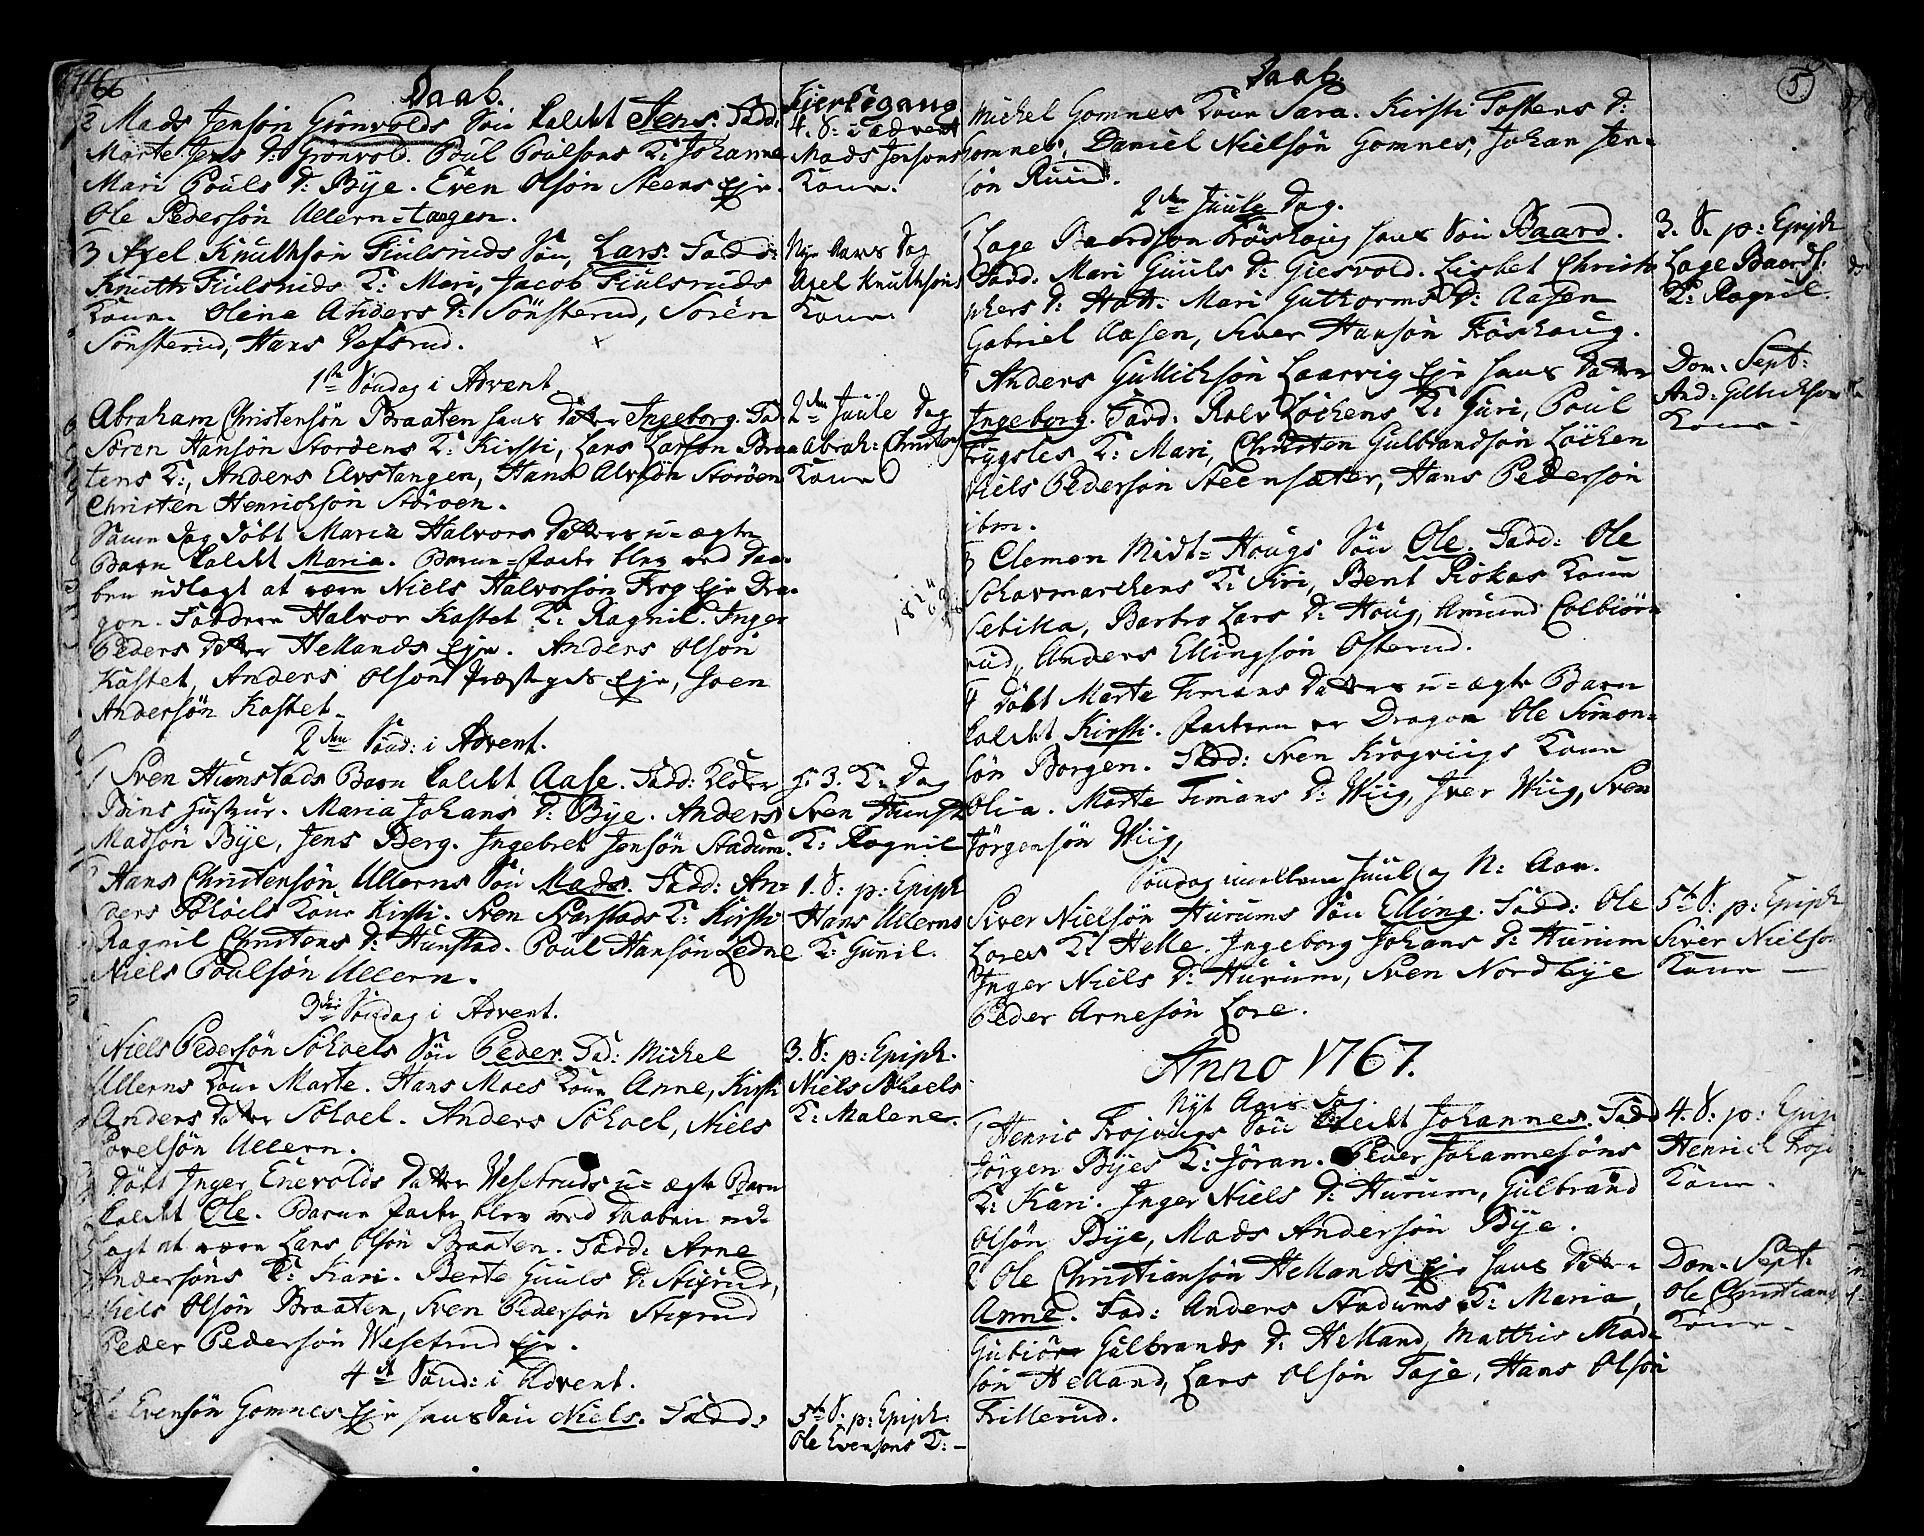 1766
Daab.
2 Mads Jensøn Grønvolds Søn kaldt Jens. Fadd:
Marte Jens D: Grønvold. Poul Poulsøns K: Johanne
Mari Pouls D: Bye. Even Olsøn Steens Eje.
Ole Pedersøn Ullern-tangen.
3 Axel Knuthsøn Fiulsruds Søn, Lars. Fadd:
Knuth Fiulsruds K: Mari, Jacob Fiulsruds
Kone. Oline Anders D: Sønsterud, Sørén
Sønsterud, Hans Vefsrud.
1ste Søndag i Advent
Abraham Christensøn Braaten hans Datter Ingeborg. Fad:
Søren Hansøn Storøens K: Kirsti, Lars Larsøn Braa-
tens K:, Anders Elvstangen, Hans Alvsøn Storøen
Christen Henrichsøn Storøen.
Samme Dag døbt Maria Halvors Datters u-ægte
Barn kaldt Maria. Barne-Fader blev ved Daa-
ben udlagt at være Niels Halvorsøn Frog Eje Dra-
gon. Faddere Halvor Kastet K: Ragnil. Inger
Peders Datter Hellands Eje. Anders Olsøn
Kastet, Anders Olsøn Præstgrds Eje, Joen
Andersøn Kastet.
2den Sønd: i Advent.
1 Sven Hunstads Barn kaldt Aase. Fadd:
Maria Johans D: Bye. Anders
Madsøn Bye, Jens Berg. Ingebret Jensøn Stadum.
Hans Christensøn Ullerns Søn Mads. Fadd: An-
ders Sohoels Kone Kirsti. Sven Svarstads K: Kirsti
Ragnil Christens D: Hunstad. Poul Hansøn Ledne
Niels Poulsøn Ullern.
3die Søndag i Advent.
Niels Pedersøn Sohoels Søn Peder. Fad: Michel
Ullerns Kone Marte. Hans Moes Kone Anne, Kirsti
Anders Datter Sohoel. Anders Sohoel, Niels
Povelsøn Ullern.
Døbt Inger Enevolds Datter Wesetruds u-ægte Barn
kaldt Ole. Barne Fader blev ved Daaben ud-
lagt at være Lars Olsøn Braaten. Fadd: Arne
Andersøns K: Kari. Berte Guuls D: Stigrud,
Niels Olsøn Braaten, Sven Pedersøn Stigrud
Peder Pedersøn Wesetrud Eje.
4de Sønd: i Advent.
Ole Evensøn Gomnes Eje hans Søn Niels. Fadd:
Kierkegang
4. S: i Advent
Mads Jensøns
Kone.
Nye Aars Dag
Axel Knuthsøns
Kone.
2den Juule Dag
Abrah: Christens
Kone
H. 3. K: Dag
Sven Hunst
K: Ragnil
1. S: p: Epiph
Hans Ullerns
K: Gunil.
3. S: p: Epiph.
Niels Sohoels
K: Malene.
5te S: p: Epiph.
Ole Evensøns K: -
Daab.
5
Michel Gomnes Kone Sara. Kirsti Tostens D:
Gomnes, Daniel Nielsøn Gomnes, Johan Jen-
søn Ruud.
2den Juule Dag.
1 Lage Baardsøn Frøshoug hans Søn Baard.
Fadd. Mari Guuls D: Giesvold. Lisbet Christo
phers D: Hott. Mari Guthorms D: Aasen
Gabriel Aasen, Siver Hansøn Frøshoug.
Anders Gullichsøn Laarvig Eje hans Datter
Ingeborg. Fadd: Rolv Løchens K: Guri, Poul
Frygsles K: Mari, Christen Gulbrandsøn Løchen
Niels Pedersøn Steensæter, Hans Pedersøn
ibm.
3 Clemen Midt-Hougs Søn Ole. Fadd: Ole
Schavmarchens K: Siri, Bent Rökas Kone
Sebilla, Barbro Lars D: Houg, Amund Colbiørn
rud, Anders Ellingsøn Osterud.
Døbt Marte Timans Datters u-ægte Barn
kaldt Kirsti. Faderen er Dragon Ole Simon-
søn Borgen. Fadd: Sven Krogviigs Kone
Olia. Marte Timans D: Wiig, Iver Wiig, Sven
Jørgensøn Wiig,
Søndag imellem Juul og N: Aar.
Siver Nielsøn Hurums Søn Elling. Fadd: Ole
Lores K: Helle. Ingeborg Johans D: Hurum
Inger Niels D: Hurum, Sven Nordbye
Peder Arnesøn Lore.
Anno 1767.
Nyt Aars Dag.
1 Henric Frojougs Søn kaldt Johannes. Fadd
Jørgen Byes K: Jøran. Peder Johannesøns
K: Kari. Inger Niels D: Hurum, Gulbrand
Olsøn Bye, Mads Andersøn Bye.
2 Ole Christiansøn Hellands Eje hans Datter
Anne. Fad: Anders Stadums K: Maria,
Gubiør Gulbrands D: Helland, Matthis Mad-
søn Helland, Lars Olsøn Foje, Hans Olsøn
Frillerud.
3. S. p: Epiph
Lage Baards:
K: Ragnil.
Dom. Sept:
And: Gullichsøn
Kone -
5te S: p: Epiph
Siver Nielsøn
Kone -
4. S: p: Epip
Henrich Froj
Kone.
Dom. Sept:
Ole Christians
Kone -